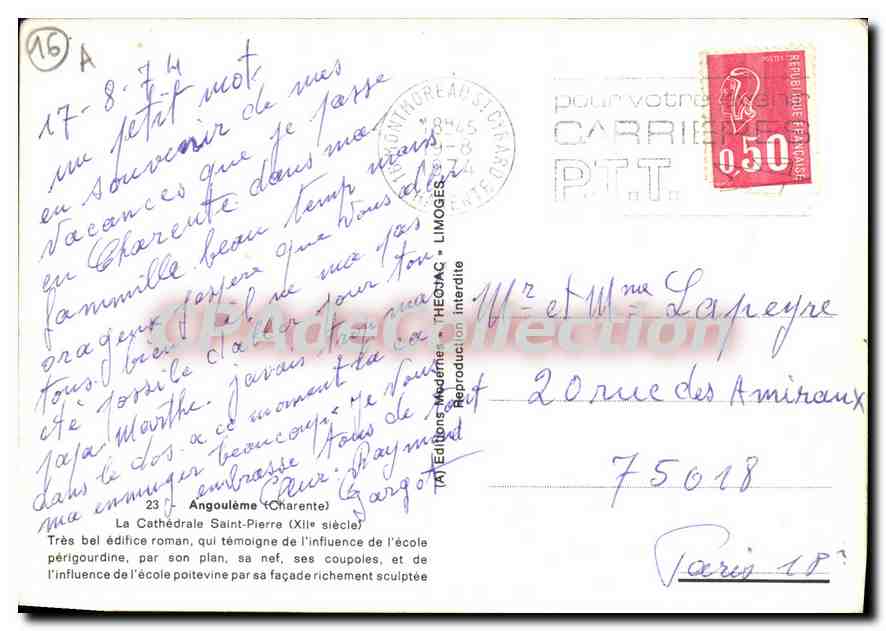 16
A
17-8-74
un petit mot
en souvenir de mes
vacances que je passe
en Charente dans ma
fammille beau temp mais
orageux j'espere que vous aller
tous bien il ne ma pas
été possile d'aller pour ton
papa Marthe. javais trop mal
dans le dos a ce moment la ca
ma ennuyer beaucoup. je vous
embrasse tous de tout
Cœur. Raymond
Gargot
MONTMOREAU ST CYBARD
18H45
-8
1974
CHARENTE
pour votre avenir
CARRIERES
P.T.T.
POSTES
REPUBLIQUE FRANÇAISE
0,50
Mr et Mme Lapeyre
20 rue des Amiraux
75018
Paris 18e
(A) Editions Modernes • THEOJAC • LIMOGES
Reproduction interdite
CPA de Collection
23 - Angoulème (Charente)
La Cathédrale Saint-Pierre (XIIe siècle)
Très bel édifice roman, qui témoigne de l'influence de l'école
périgourdine, par son plan, sa nef, ses coupoles, et de
l'influence de l'école poitevine par sa façade richement sculptée